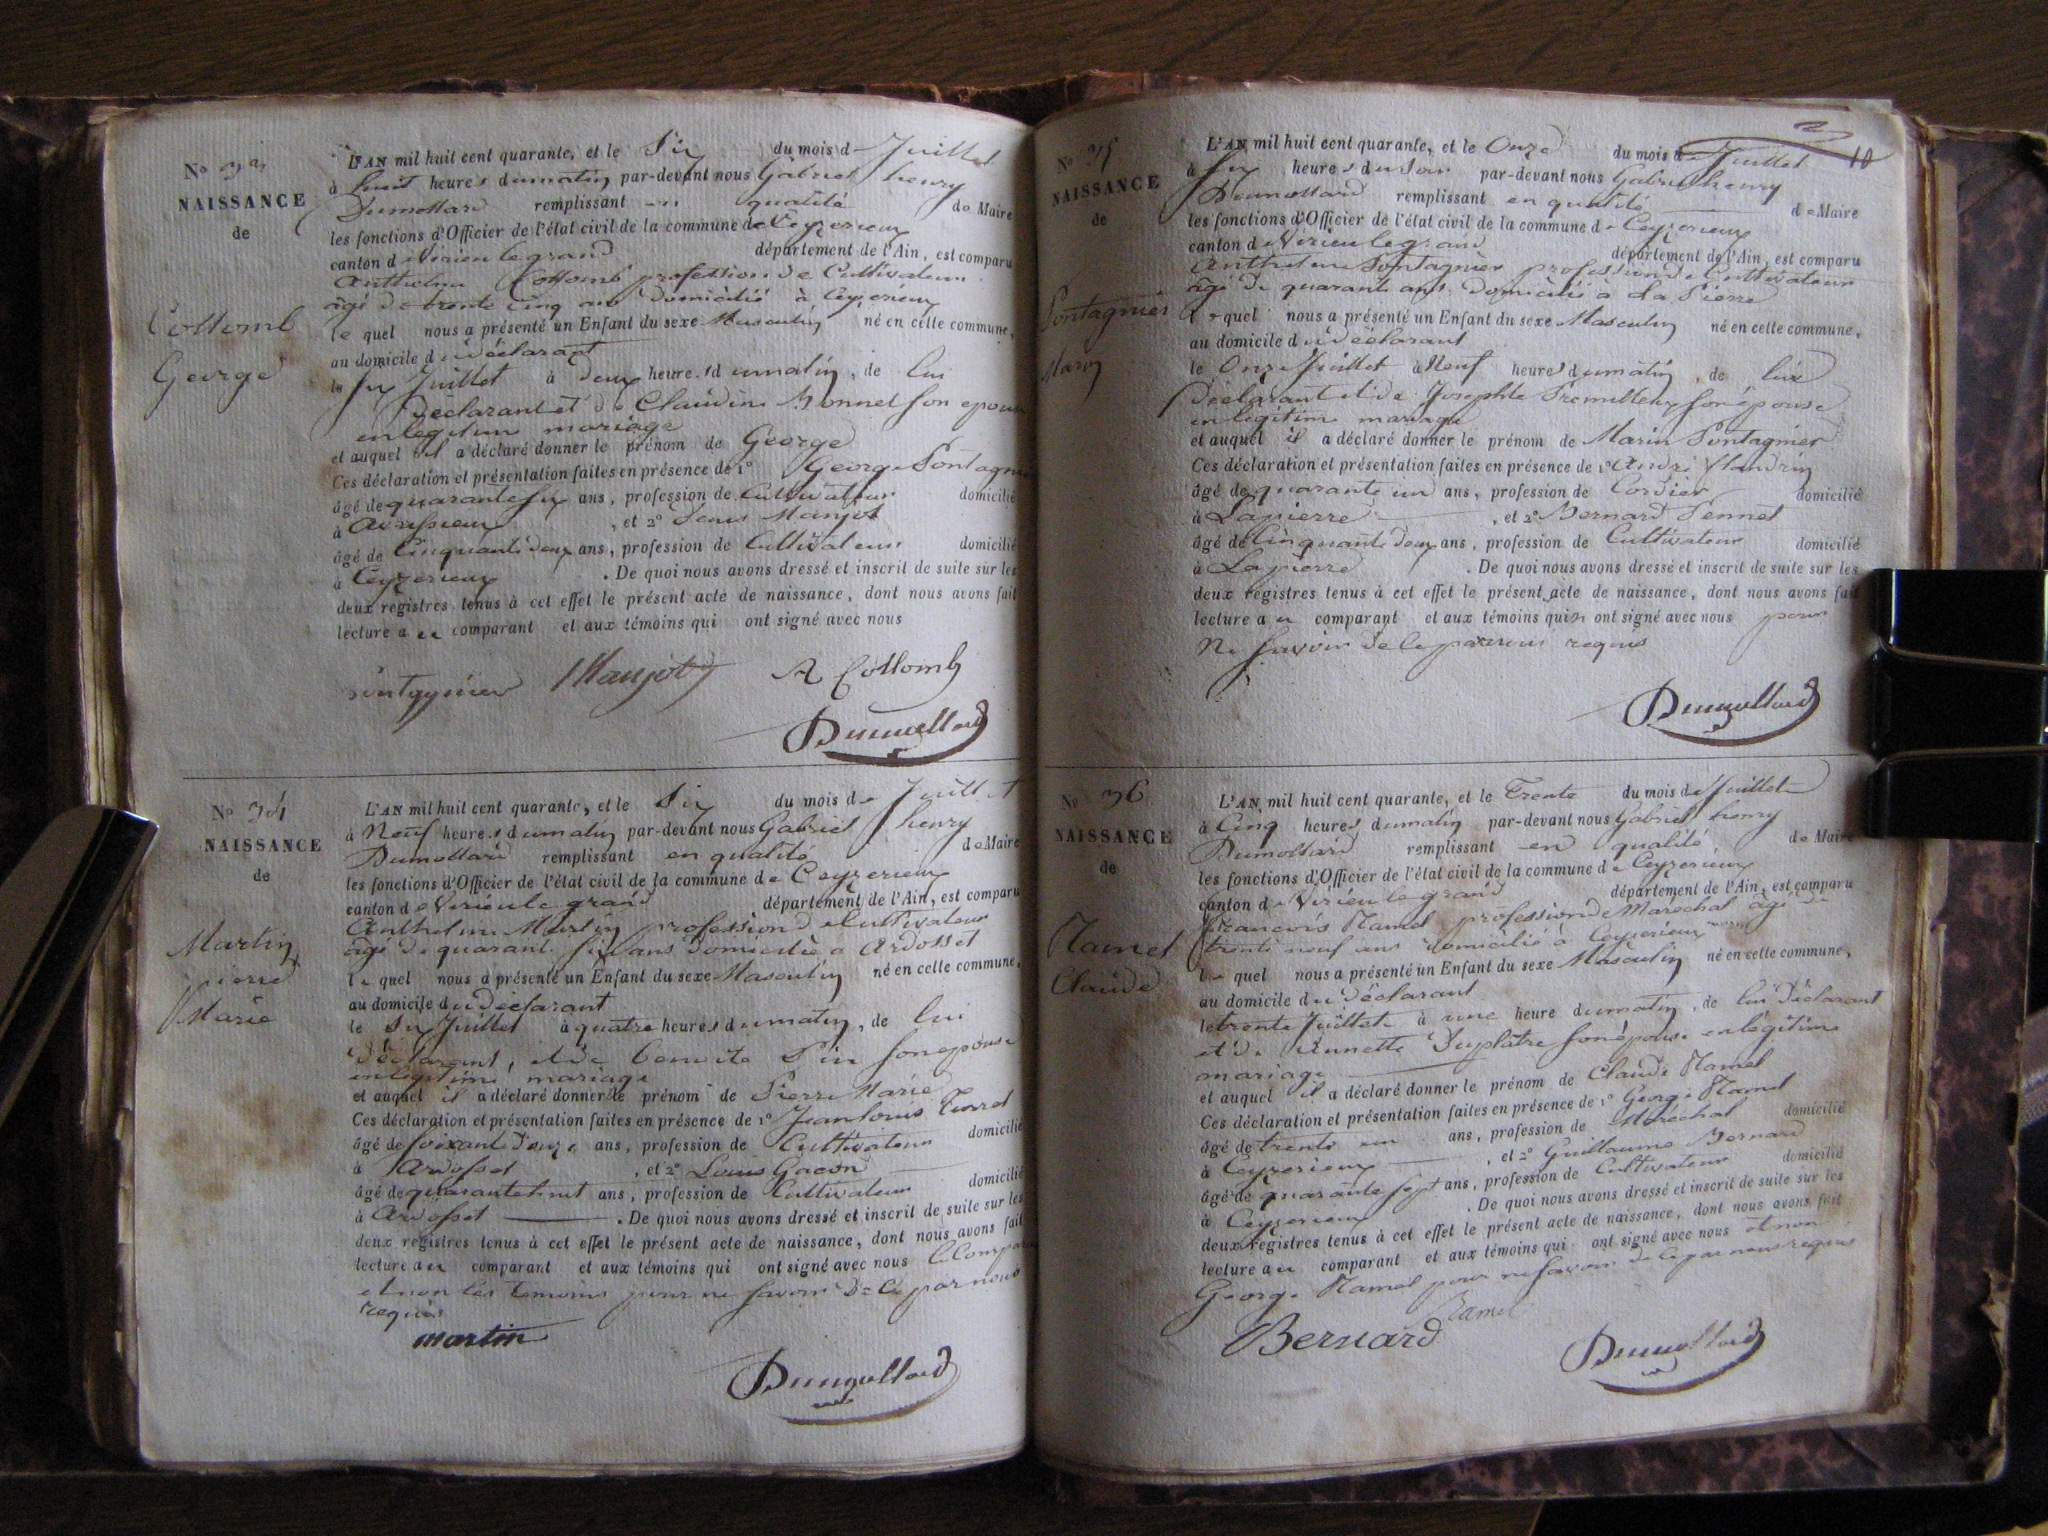 N°
NAISSANCE
de
Collomb
George
L'AN mil huit cent quarante, et le Six du mois de Juillet
à huit heures du matin par-devant nous Gabriel henry
Dumollard remplissant en qualité de Maire
les fonctions d'Officier de l'état civil de la commune de Ceyzerieux
canton de Virieu le grand département de l'Ain, est comparu
Anthelme Collomb profession de Cultivateur
âgé de trente cinq ans domicilié à Ceyzerieux
le quel nous a présenté un Enfant du sexe Masculin né en cette commune,
au domicile du déclarant
le six Juillet à deux heures du matin, de lui
déclarant et de Claudine Monnet son epouse
en legitime mariage
et auquel il a déclaré donner le prénom de George
Ces déclaration et présentation faites en présence de 1° George Pontagnier
âgé de quarante six ans, profession de Cultivateur domicilié
à , et 2° Denis Manjot
âgé de Cinquante deux ans, profession de Cultivateur domicilié
à Ceyzerieux . De quoi nous avons dressé et inscrit de suite sur les
deux registres tenus à cet effet le présent acte de naissance, dont nous avons fait
lecture au comparant et aux témoins qui ont signé avec nous
Manjot A Collomb
Dumollard
N° 34
NAISSANCE
de
Martin
pierre
Marie
L'AN mil huit cent quarante, et le Six du mois de Juillet
à Neuf heures du matin par-devant nous Gabriel henry
Dumollard remplissant en qualité de Maire
les fonctions d'Officier de l'état civil de la commune de Ceyzerieux
canton de Virieu le grand département de l'Ain, est comparu
Anthelme Martin profession de Cultivateur
âgé de quarante six ans domicilié a Ardosset
le quel nous a présenté un Enfant du sexe Masculin né en cette commune,
au domicile du déclarant
le six Juillet à quatre heures du matin, de lui
déclarant, et de Benoite son epouse
en legitime mariage
et auquel il a déclaré donner le prénom de Pierre Marie
Ces déclaration et présentation faites en présence de 1° Jean louis
âgé de soixante douze ans, profession de Cultivateur domicilié
à Ardosset , et 2° Louis Gacon
âgé de quarante huit ans, profession de Cultivateur domicilié
à Ardosset . De quoi nous avons dressé et inscrit de suite sur les
deux registres tenus à cet effet le présent acte de naissance, dont nous avons fait
lecture au comparant et aux témoins qui ont signé avec nous le Comparant
et non les temoins pour ne savoir de ce par nous
requis
martin
Dumollard
10
N° 35
NAISSANCE
de
Pontagnier
Marin
L'AN mil huit cent quarante, et le Onze du mois de Juillet
à six heures du soir par-devant nous Gabriel henry
Dumollard remplissant en qualité de Maire
les fonctions d'Officier de l'état civil de la commune de Ceyzerieux
canton de Virieu le grand département de l'Ain, est comparu
Anthelme Pontagnier profession de Cultivateur
âgé de quarante ans domicilié à La Pierre
le quel nous a présenté un Enfant du sexe Masculin né en cette commune,
au domicile du déclarant
le Onze Juillet à Neuf heures du matin, de lui
déclarant et de Josephte son épouse
en legitime mariage
et auquel il a déclaré donner le prénom de Marin Pontagnier
Ces déclaration et présentation faites en présence de 1° André flandrin
âgé de quarante un ans, profession de Cordier domicilié
à Lapierre , et 2° Bernard Pennet
âgé de Cinquante deux ans, profession de Cultivateur domicilié
à Lapierre . De quoi nous avons dressé et inscrit de suite sur les
deux registres tenus à cet effet le présent acte de naissance, dont nous avons fait
lecture au comparant et aux témoins qui n ont signé avec nous pour
ne savoir de ce par nous requis
Dumollard
N° 36
NAISSANCE
de
Ramel
Claude
L'AN mil huit cent quarante, et le Trente du mois de Juillet
à Cinq heures du matin par-devant nous Gabriel henry
Dumollard remplissant en qualité de Maire
les fonctions d'Officier de l'état civil de la commune de Ceyzerieux
canton de Virieu le grand département de l'Ain, est comparu
François Ramel profession de Maréchal âgé de
trente neuf ans domicilié à Ceyzerieux
le quel nous a présenté un Enfant du sexe Masculin né en cette commune,
au domicile du déclarant
le trente Juillet à une heure du matin, de lui déclarant
et de Annette Duplatre son épouse en légitime
mariage
et auquel il a déclaré donner le prénom de Claude Ramel
Ces déclaration et présentation faites en présence de 1° George Ramel
âgé de trente un ans, profession de Maréchal domicilié
à Ceyzerieux , et 2° Guillaume Bernard
âgé de quarante sept ans, profession de Cultivateur domicilié
à Ceyzerieux . De quoi nous avons dressé et inscrit de suite sur les
deux registres tenus à cet effet le présent acte de naissance, dont nous avons fait
lecture au comparant et aux témoins qui ont signé avec nous et non
George Ramel pour ne savoir de ce par nous requis
Ramel
Bernard
Dumollard